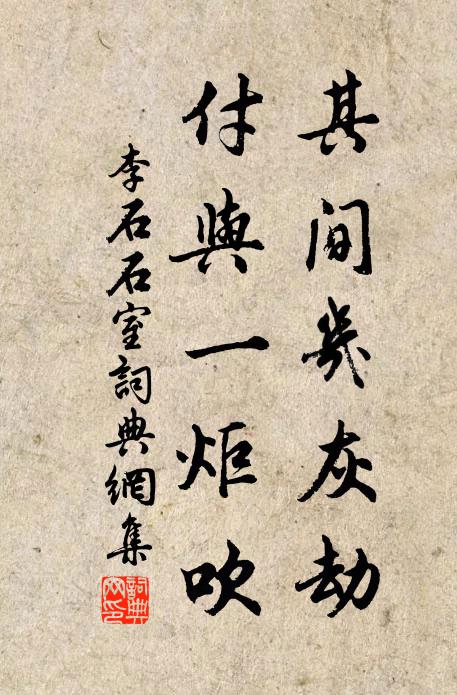 其間幾灰劫
付與一炬吹
李石石室詞典網集
詞典網印